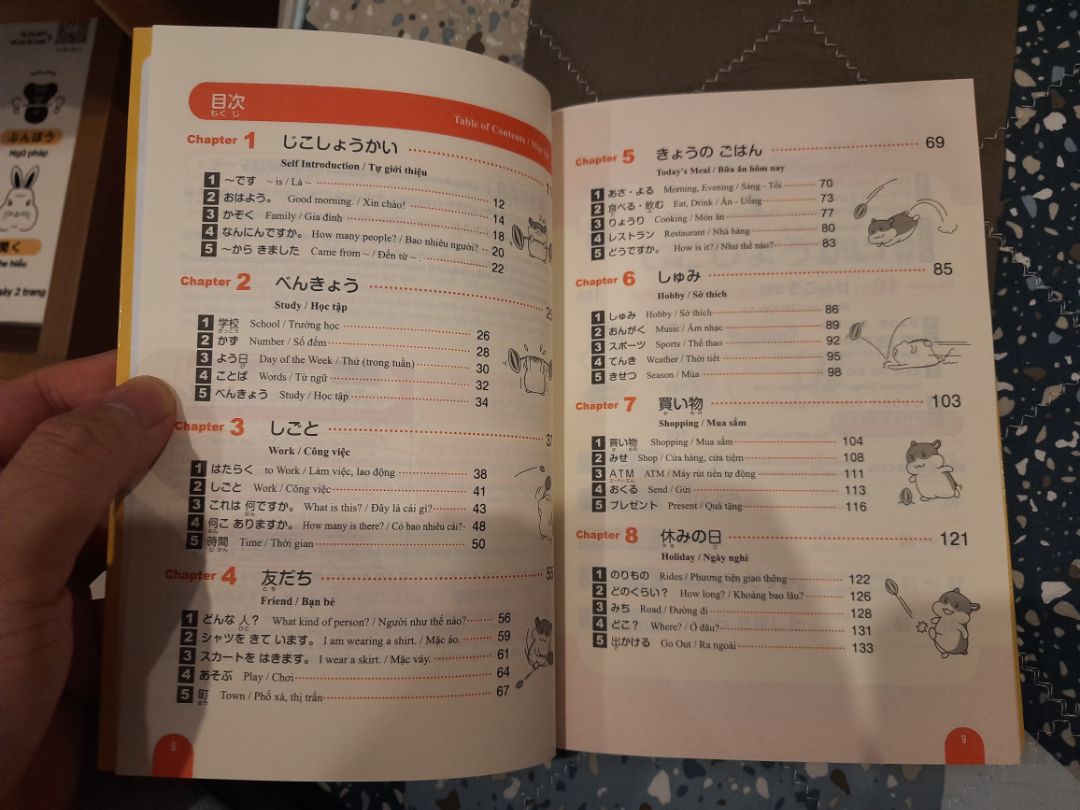 ぶんぽう
Ngữ pháp
聞く
目次
もく じ
Table of Contents /
Chapter 1 じこしょうかい
Self Introduction / Tự giới thiệu
1 ～です ~ is / Là ~ 12
2 おはよう。 Good morning. / Xin chào! 14
3 かぞく Family / Gia đình 18
4 なんにんですか。 How many people? / Bao nhiêu người? 20
5 ～から きました Came from ~ / Đến từ ~ . 22
Chapter 2 べんきょう
Study / Học tập
1 学校 School / Trường học 26
がっこう
2 かず Number / Số đếm 28
3 よう日 Day of the Week / Thứ (trong tuần) 30
び
4 ことば Words / Từ ngữ 32
5 べんきょう Study / Học tập 34
Chapter 3 しごと 37
Work / Công việc
1 はたらく to Work / Làm việc, lao động 38
2 しごと Work / Công việc 41
3 これは 何ですか。 What is this? / Đây là cái gì? 43
なん
4 何こ ありますか。 How many is there? / Có bao nhiêu cái? 48
なん
5 時間 Time / Thời gian 50
じ かん
Chapter 4 友だち 55
とも
Friend / Bạn bè
1 どんな 人？ What kind of person? / Người như thế nào? 56
ひと
2 シャツを きて います。 I am wearing a shirt. / Mặc áo. 59
3 スカートを はきます。 I wear a skirt. / Mặc váy. 61
4 あそぶ Play / Chơi 64
5 町 Town / Phố xá, thị trấn 67
まち
8
Chapter 5 きょうの ごはん 69
Today's Meal / Bữa ăn hôm nay
1 あさ・よる Morning, Evening / Sáng - Tối 70
2 食べる・飲む Eat, Drink / Ăn - Uống 73
た の
3 りょうり Cooking / Món ăn 77
4 レストラン Restaurant / Nhà hàng 80
5 どうですか。 How is it? / Như thế nào? 83
Chapter 6 しゅみ 85
Hobby / Sở thích
1 しゅみ Hobby / Sở thích 86
2 おんがく Music / Âm nhạc 89
3 スポーツ Sports / Thể thao 92
4 てんき Weather / Thời tiết 95
5 きせつ Season / Mùa 98
Chapter 7 買い物 103
か もの
Shopping / Mua sắm
1 買い物 Shopping / Mua sắm 104
か もの
2 みせ Shop / Cửa hàng, cửa tiệm 108
3 ATM ATM / Máy rút tiền tự động 111
エーティーエム
4 おくる Send / Gửi 113
5 プレゼント Present / Quà tặng 116
Chapter 8 休みの日 121
やす ひ
Holiday / Ngày nghỉ
1 のりもの Rides / Phương tiện giao thông 122
2 どのくらい？ How long? / Khoảng bao lâu? 126
3 みち Road / Đường đi 128
4 どこ？ Where? / Ở đâu? 131
5 出かける Go Out / Ra ngoài 133
で
9